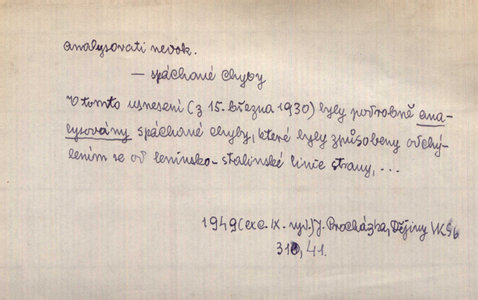 analysovati nevok.
— spáchané chyby
V tomto usnesení (z 15. března 1930) byly podrobně ana-
lysovány spáchané chyby, které byly způsobeny odchý-
lením se od leninsko-stalinské linie strany, ...
1949 (exc. IX. vyd.) J. Procházka, Dějiny VKSb
310, 41.